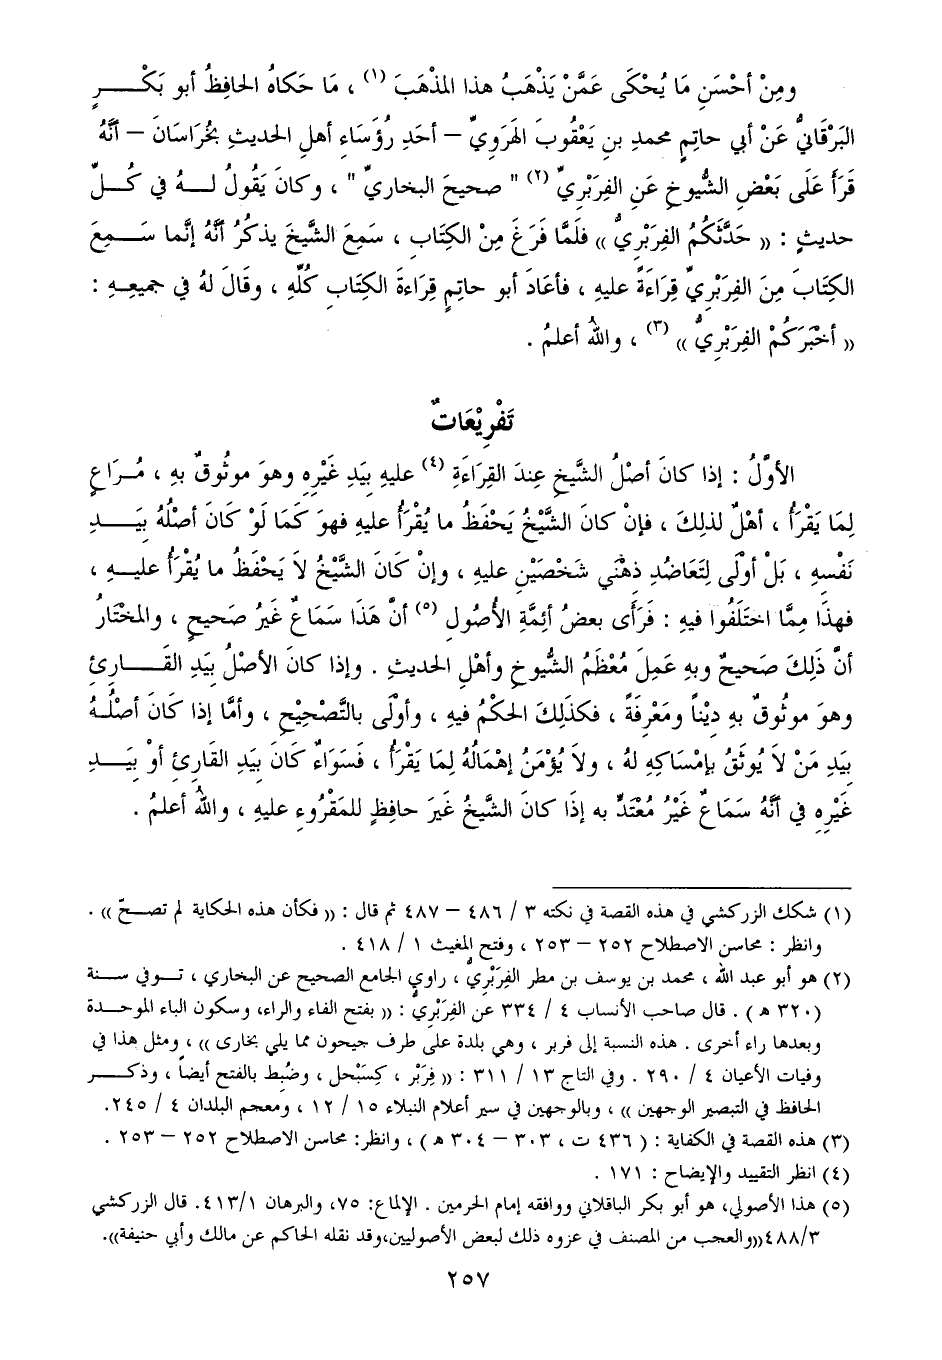 ومِنْ أحْسَنِ مَا يُحْكَى عَمَّنْ يَذْهَبُ هذا المذْهَبَ (١) ، مَا حَكاهُ الحافِظُ أبو بَكْرٍ
البَرْقَانِيُّ عَنْ أبي حاتِمٍ محمدِ بنِ يَعْقُوبَ الهَرَوِيِّ – أحَدِ رُؤَسَاءِ أهلِ الحديثِ بِخُرَاسَانَ – أنَّهُ
قَرَأَ عَلَى بَعْضِ الشُّيوخِ عَنِ الفِرَبْرِيِّ (٢) " صحيحَ البخاريِّ " ، وكانَ يَقُولُ لــهُ في كُلِّ
حديثٍ : (( حَدَّثَكُمُ الفِرَبْرِيُّ )) فلَمَّا فَرَغَ مِنَ الكِتَابِ ، سَمِعَ الشَّيخَ يذكُرُ أنَّهُ إنَّما سَمِعَ
الكِتَابَ مِنَ الفِرَبْرِيِّ قِرَاءَةً عليهِ ، فأعَادَ أبو حاتِمٍ قِرَاءةَ الكِتَابِ كُلِّهِ ، وقَالَ لهُ في جميعِهِ :
(( أخْبَرَكُمْ الفِرَبْرِيُّ )) (٣) ، واللهُ أعلمُ .
تَفْرِيْعَاتٌ
الأوَّلُ : إذا كانَ أصْلُ الشَّيخِ عِندَ القِرَاءَةِ (٤) عليهِ بِيَدِ غَيْرِهِ وهوَ موثُوقٌ بهِ ، مُرَاعٍ
لِمَا يَقْرَأُ ، أهْلٌ لذلِكَ ، فإنْ كانَ الشَّيْخُ يَحْفَظُ ما يُقْرَأُ عليهِ فهوَ كَمَا لَوْ كَانَ أصْلُهُ بِيَدِ
نَفْسِهِ ، بَلْ أولَى لِتَعَاضُدِ ذِهْنَي شَخْصَيْنِ عليهِ ، وإنْ كَانَ الشَّيْخُ لاَ يَحْفَظُ ما يُقْرَأُ عليهِ ،
فهذا مِمَّا اختَلَفُوا فيهِ : فَرَأى بعضُ أئِمَّةِ الأُصُولِ (٥) أنَّ هَذَا سَمَاعٌ غَيرُ صَحيحٍ ، والمختَارُ
أنَّ ذَلِكَ صَحيحٌ وبهِ عَمِلَ مُعْظَمُ الشُّيوخِ وأهْلِ الحديثِ . وإذا كانَ الأصْلُ بِيَدِ القَارِئِ
وهوَ موثُوقٌ بهِ دِيْناً ومَعْرِفَةً ، فكذلِكَ الحكْمُ فيهِ ، وأولَى بالتَّصْحِيْحِ ، وأمَّا إذا كَانَ أصْلُهُ
بِيَدِ مَنْ لاَ يُوثَقُ بإمْساكِهِ لهُ ، ولاَ يُؤْمَنُ إهْمالُهُ لِمَا يَقْرَأُ ، فَسَوَاءٌ كَانَ بِيَدِ القَارِئِ أوْ بِيَدِ
غَيْرِهِ في أنَّهُ سَمَاعٌ غَيْرُ مُعْتَدٍّ به إذَا كانَ الشَّيخُ غَيرَ حافِظٍ للمَقْرُوءِ عليهِ ، واللهُ أعلمُ .
(١) شكك الزركشي في هذه القصة في نكته ٣ / ٤٨٦ – ٤٨٧ ثم قال : (( فكأن هذه الحكاية لم تصحّ )) .
وانظر : محاسن الاصطلاح ٢٥٢ – ٢٥٣ ، وفتح المغيث ١ / ٤١٨ .
(٢) هو أبو عبد الله ، محمد بن يوسف بن مطر الفِرَبْرِيُّ ، راوي الجامع الصحيح عن البخاري ، توفي سنة
(٣٢٠ ه) . قال صاحب الأنساب ٤ / ٣٣٤ عن الفِرَبْرِيُّ : (( بفتح الفاء والراء، وسكون الباء الموحدة
وبعدها راء أخرى . هذه النسبة إلى فربر ، وهي بلدة على طرف جيحون مما يلي بخارى )) ، ومثل هذا في
وفيات الأعيان ٤ / ٢٩٠ . وفي التاج ١٣ / ٣١١ : (( فِرَبْر ، كسِبَحل ، وضُبط بالفتح أيضاً ، وذكر
الحافظ في التبصير الوجهين )) ، وبالوجهين في سير أعلام النبلاء ١٥ / ١٢ ، ومعجم البلدان ٤ / ٢٤٥.
(٣) هذه القصة في الكفاية : ( ٤٣٦ ت ، ٣٠٣ – ٣٠٤ ه ) ، وانظر: محاسن الاصطلاح ٢٥٢ – ٢٥٣ .
(٤) انظر التقييد والإيضاح : ١٧١ .
(٥) هذا الأصولي، هو أبو بكر الباقلاني ووافقه إمام الحرمين . الإلماع: ٧٥، والبرهان ٤١٣/١. قال الزركشي
٤٨٨/٣((والعجب من المصنف في عزوه ذلك لبعض الأصوليين،وقد نقله الحاكم عن مالك وأبي حنيفة)).
٢٥٧